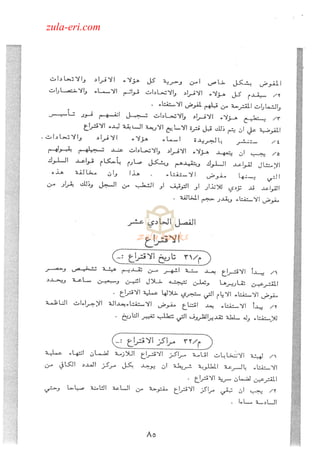 zula-eri.com
المفوض بشكل خاص امن وحرية كل هؤلاء الافراد والاتحادات
٢/ يقدم كل هؤلاء الافراد والاتحادات قوائم باسماء والاختصارات
والشارات المقترحة من قبلهم لمفوض الاستفتاء .
٣/ يصبح هؤلاء الافراد والاتحادات تسجل انفسهم فور تأسيس
المفوضية على ان يتم ذلك قبل فترة الاسابيع الاربعة السابقة لبدء الاقتراع
٤/ ستنشر بالجريدة اسماء هؤلاء الافراد والاتحادات .
٥/ يجب ان يتعهد هؤلاء الافراد والاتحادات عند تسجيلهم بقبولهم
الامتثال لقواعد السلوك وتقيدهم بشكل خاص باحكام قواعد السلوك
التي يسنها مفوض الاستفتاء . وان مخالفة هذه
القواعد قد تؤدي للانذار او التوقيف او الشطب من السجل وذلك بقرار من
مفوض الاستفتاء يحدد بقدر المخالفة .
الفصل الحادي عشر
الاقتراع
م/٣١ تاريخ الاقتراع :-
١/ يبدأ الاقتراع بعد ستة اشهر من تقديم هيئة تشخيص وحصر
المقترعين تقاريرها وتعلن نتيجته خلال اثنين وسبعين ساعة ويحدد
مفوض الاستفتاء الايام التي ستجري خلالها عملية الاقتراع .
٢/ يبدأ الاستفتاء بعد اقتناع مفوض الاستفتاءبعدالة الاجراءات المنظمة
للاستفتاء وله سلطة تقديرالظروف التي تتطلب تغيير التاريخ .
م/٣٢ مراكز الاقتراع :-
١/ تهيئة الانتخابات اقامة مراكز الاقتراع اللازمة لضمان انتهاء عملية
الاستفتاء بالسرعة المطلوبة شريطة ان يوجد بكل مركز العدد الكافي من
المقترعين لضمان سرية الاقتراع .
٢/ يجب ان تبقى مراكز الاقتراع مفتوحة من الساعة الثامنة صباحا وحتى
السادسة مساء .
٨٥